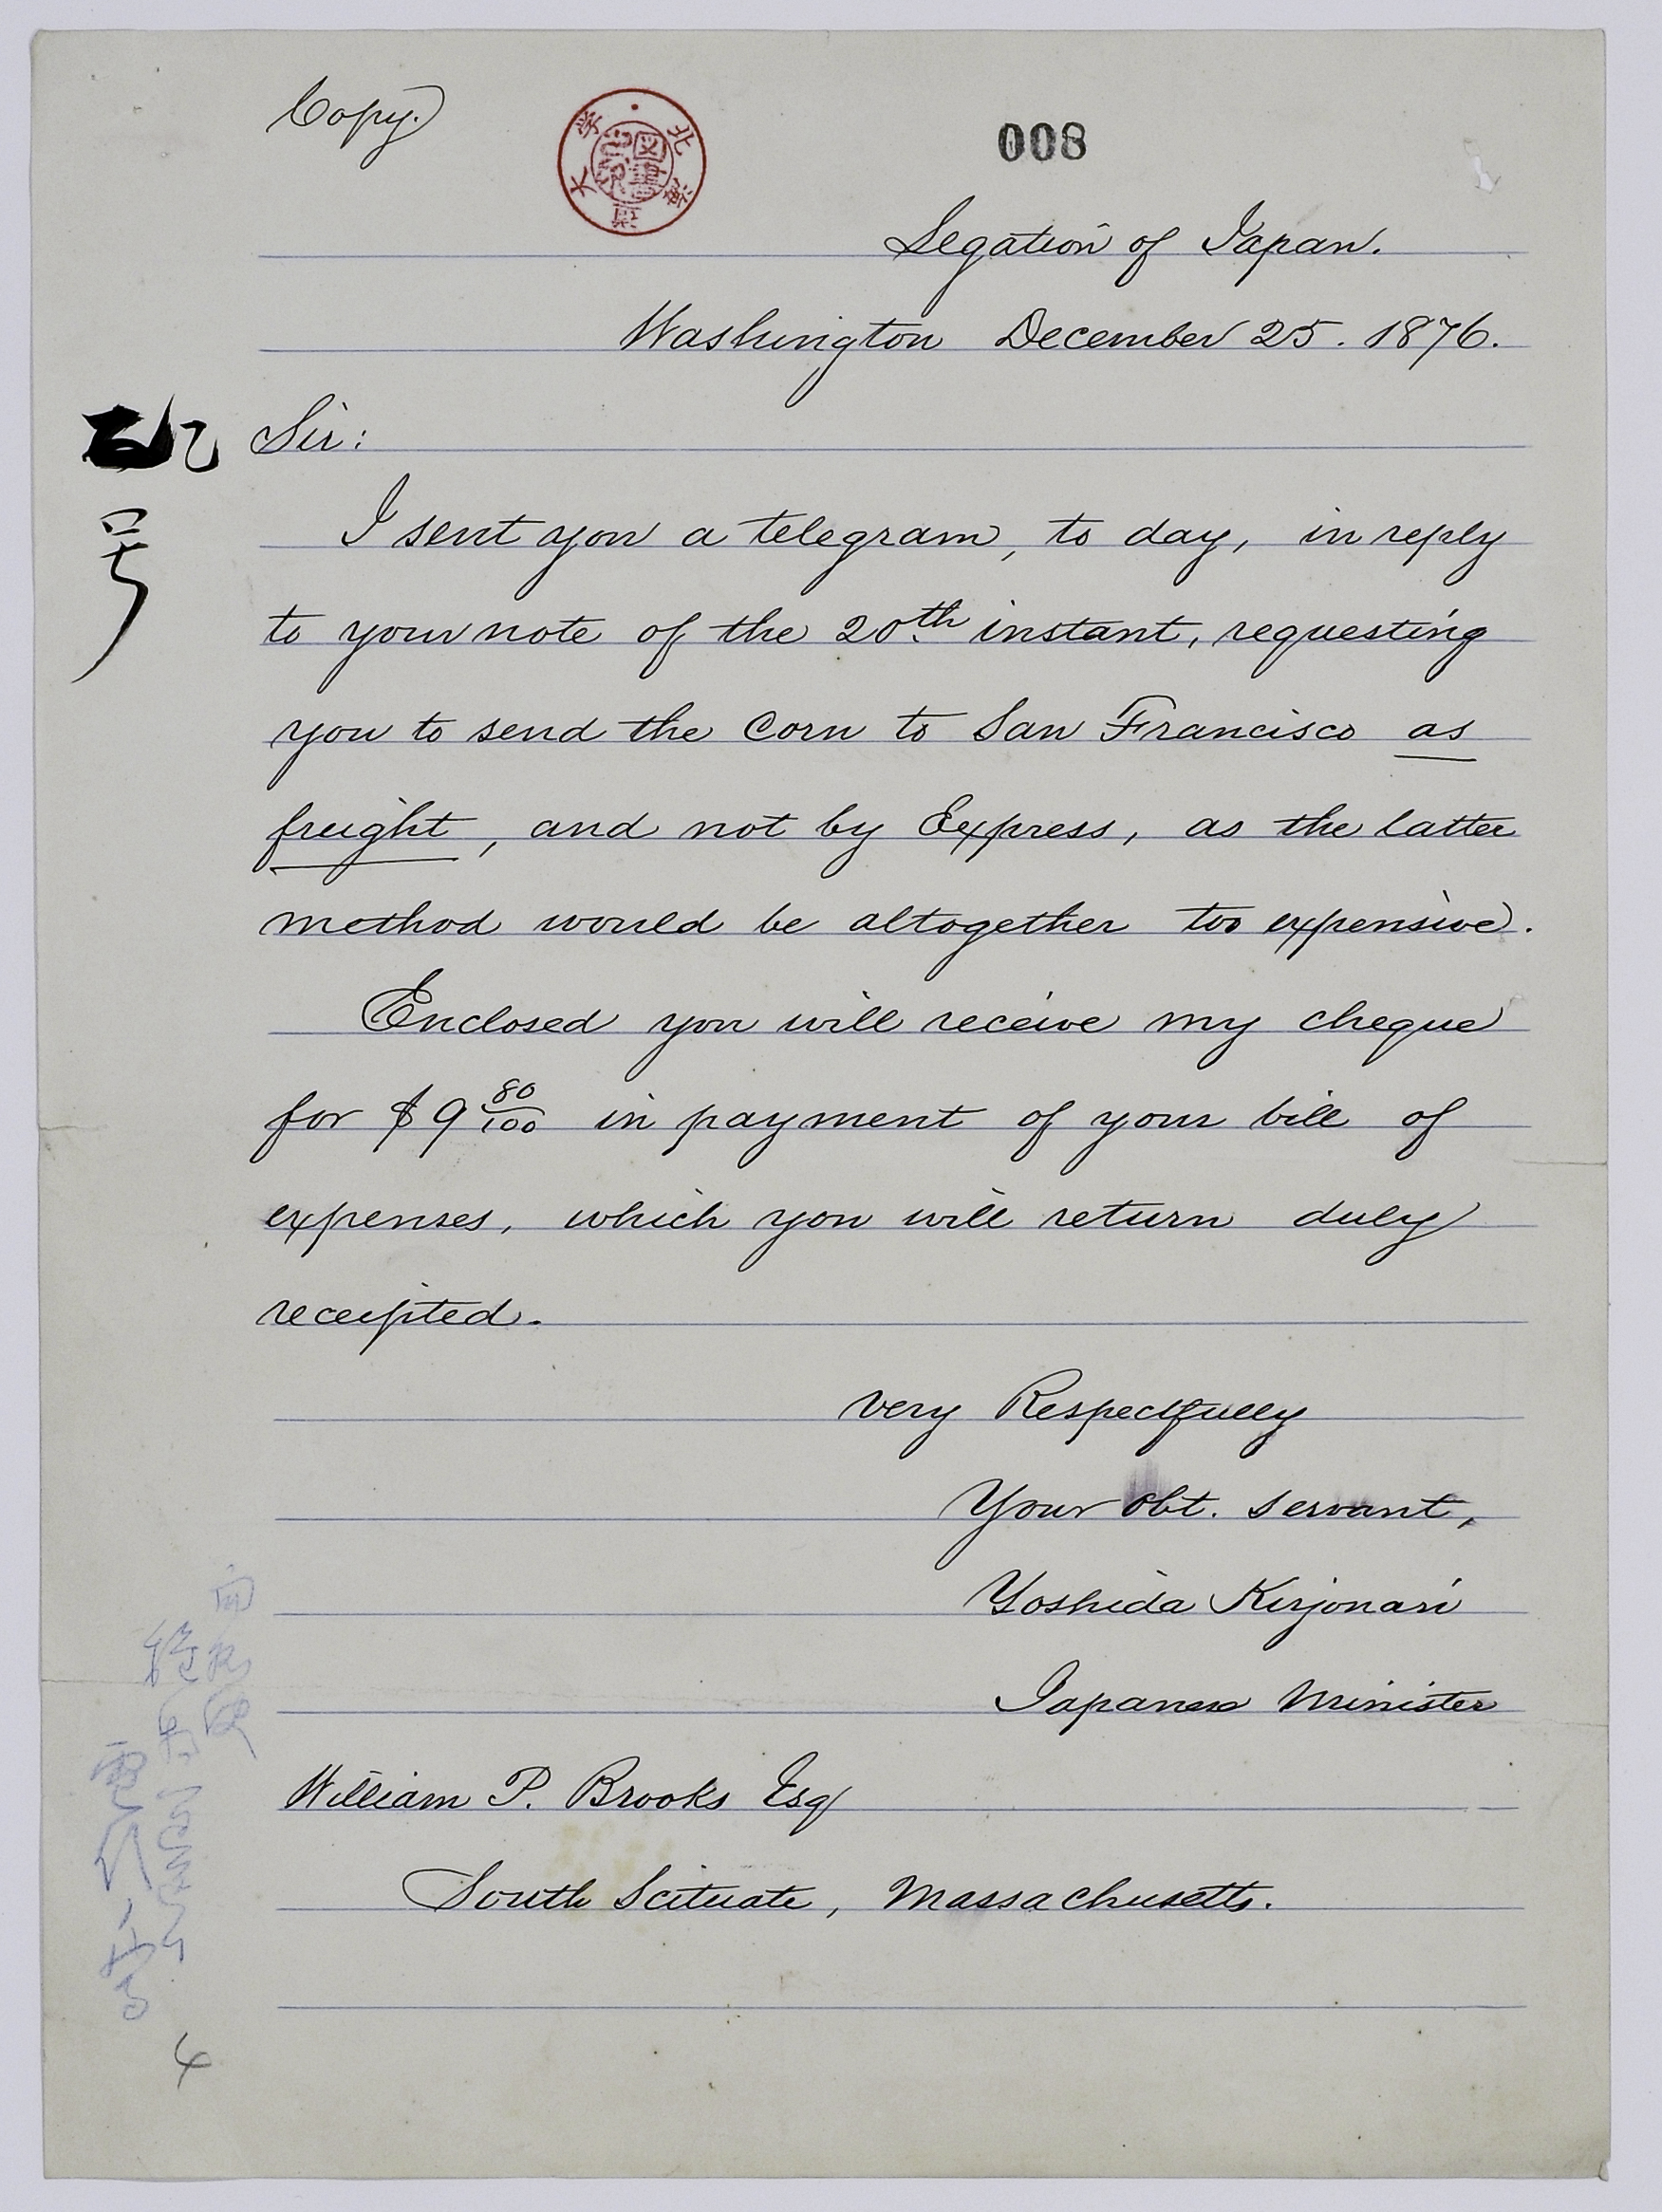 Copy.
北海道大学
図書
008
Legation of Japan.
Washington December 25. 1876.
Sir:
号
I sent you a telegram, to day, in reply
to your note of the 20th instant, requesting
you to send the Corn to San Francisco as
freight, and not by Express, as the latter
method would be altogether too expensive.
Enclosed you will receive my cheque
for $9 80/100 in payment of your bill of
expenses, which you will return duly
receipted.
Very Respectfully
Your obt. servant,
Yoshida Kirjonari
Japanese Minister
William P. Brooks Esq
South Scituate, Massachusetts.
4